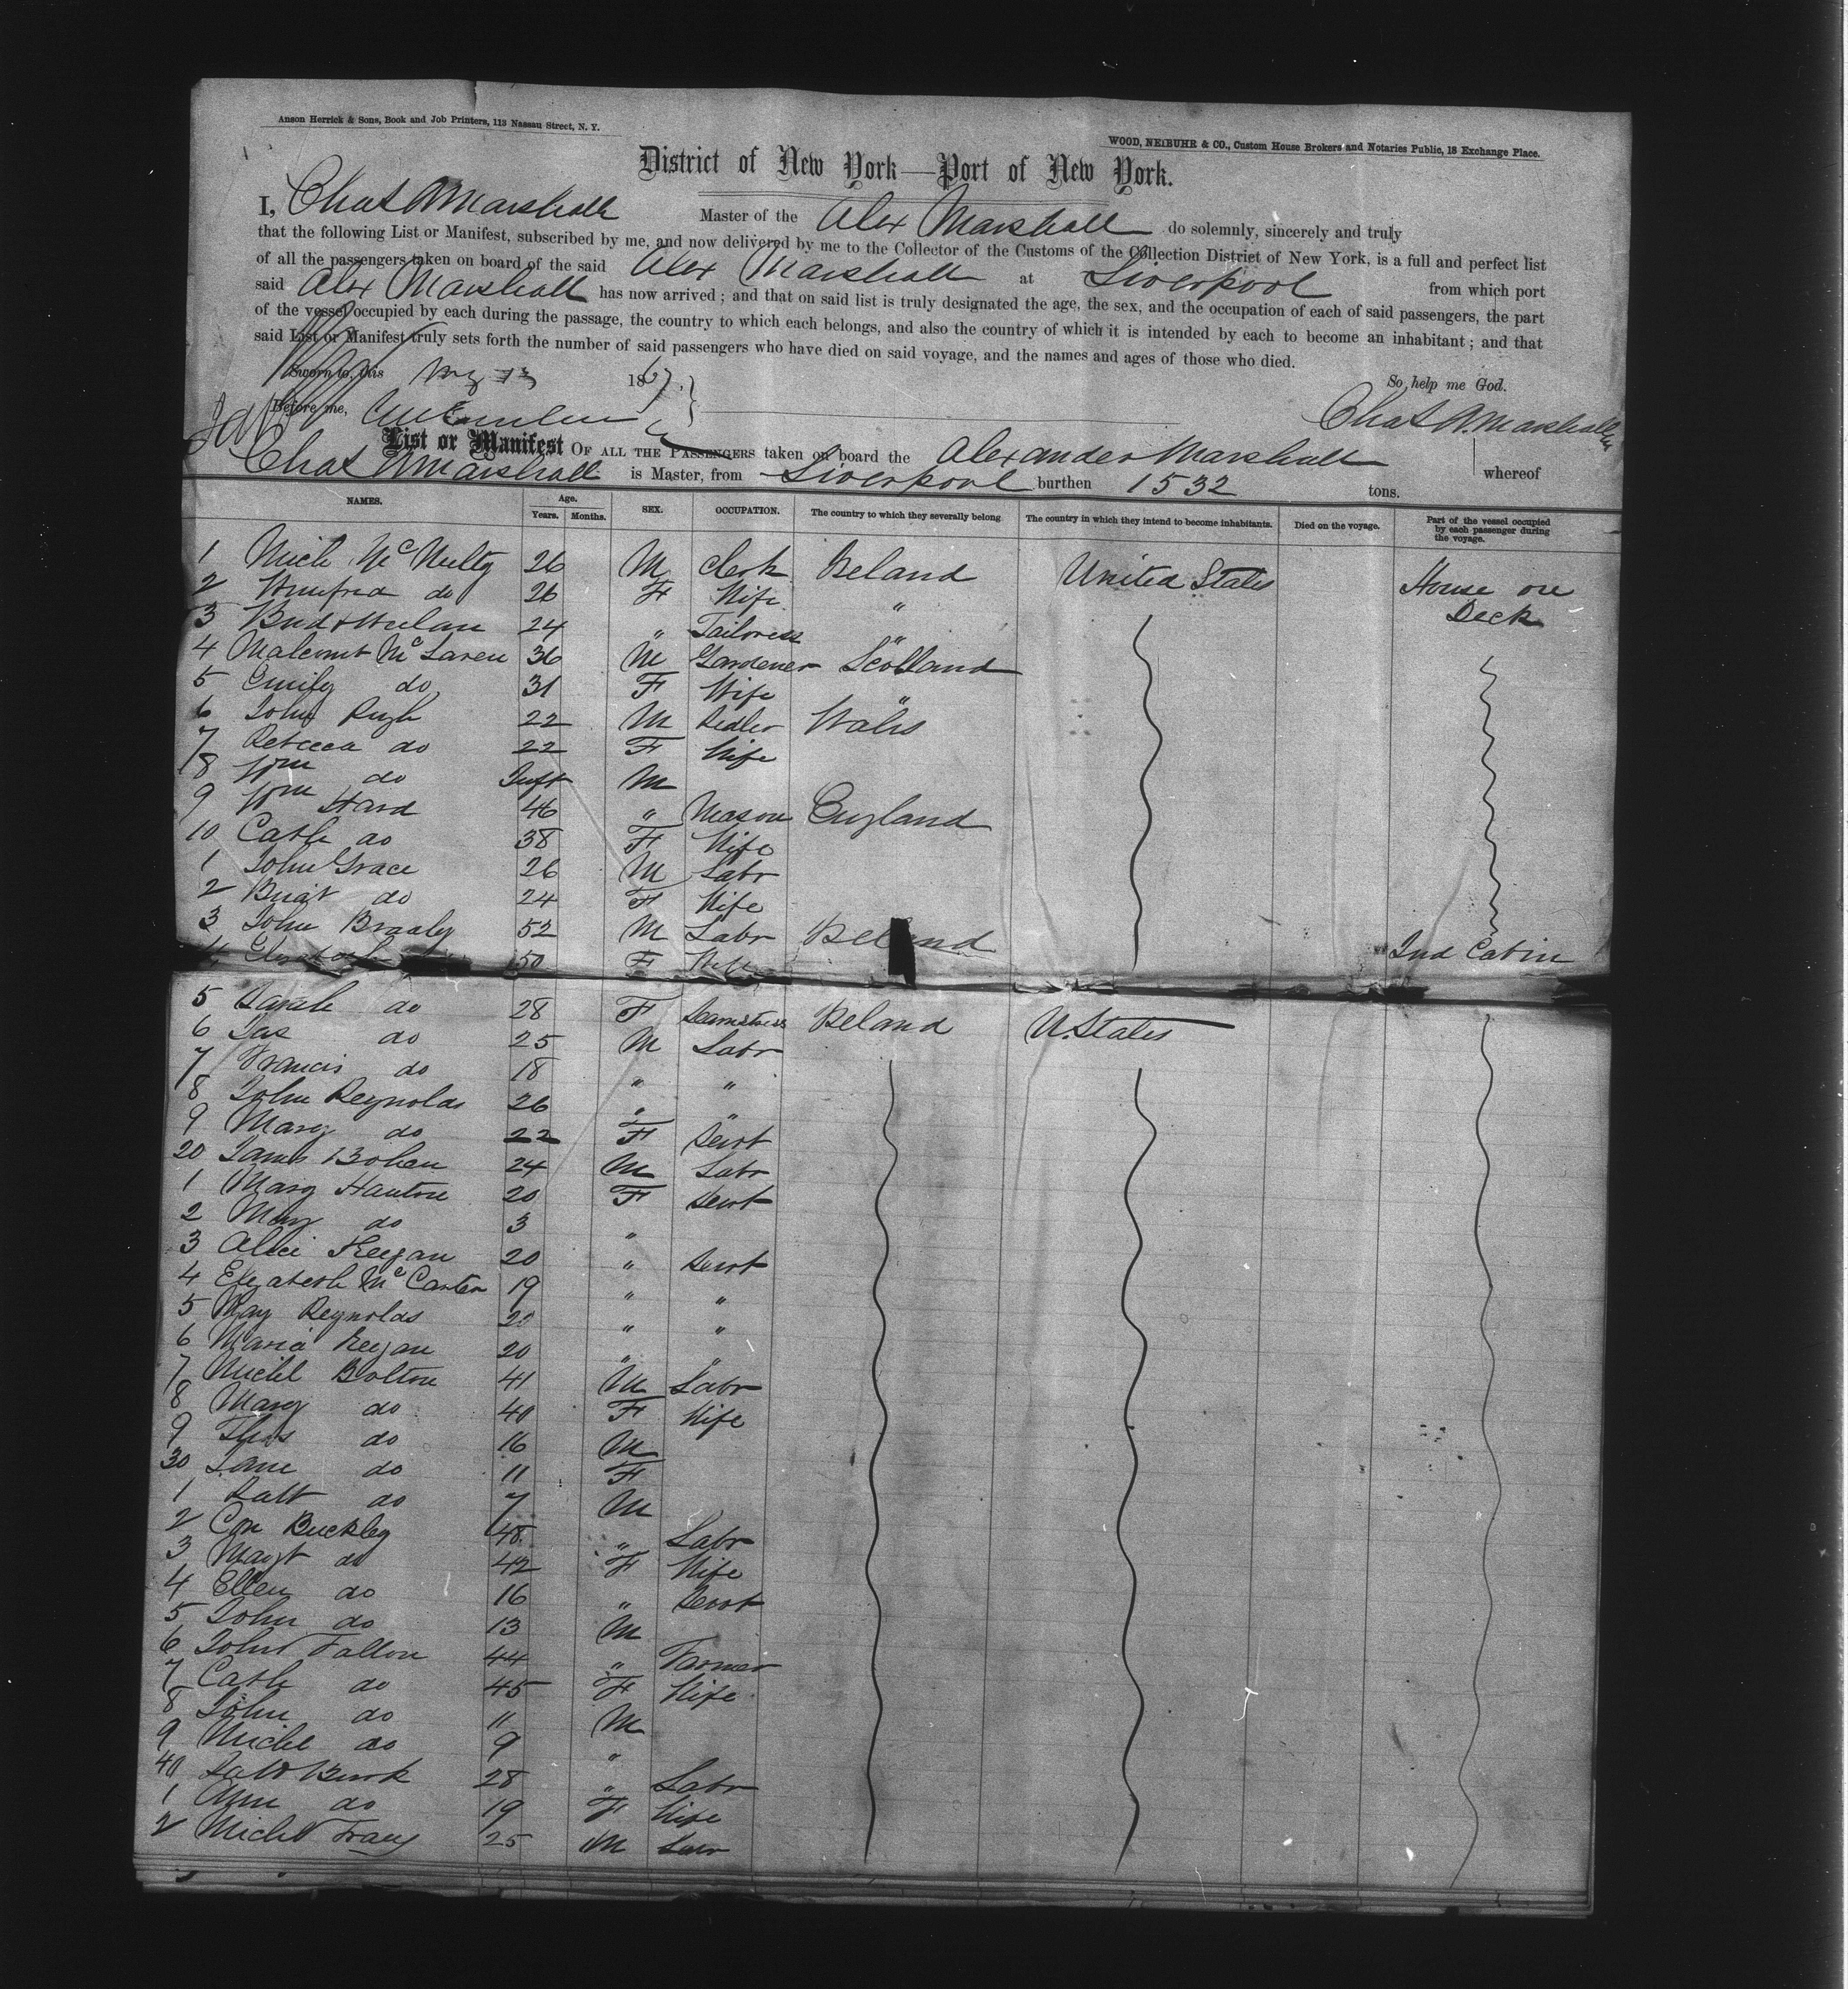 Anson Herrick & Sons, Book and Job Printers, 113 Nassau Street, N. Y.
WOOD, NEIBUHR & CO., Custom House Brokers and Notaries Public, 18 Exchange Place.
District of New York—Port of New York.
I, Chas A Marshall Master of the Alex Marshall do solemnly, sincerely and truly
that the following List or Manifest, subscribed by me, and now delivered by me to the Collector of the Customs of the Collection District of New York, is a full and perfect list
of all the passengers taken on board of the said Alex Marshall at Liverpool from which port
said Alex Marshall has now arrived; and that on said list is truly designated the age, the sex, and the occupation of each of said passengers, the part
of the vessel occupied by each during the passage, the country to which each belongs, and also the country of which it is intended by each to become an inhabitant; and that
said List or Manifest truly sets forth the number of said passengers who have died on said voyage, and the names and ages of those who died.
Sworn to, this 1867. So help me God.
Before me, Chas A. Marshall
List or Manifest OF ALL THE PASSENGERS taken on board the Alexander Marshall whereof
Chas A Marshall is Master, from Liverpool burthen 1532 tons.
NAMES. Age. Years. Months. SEX. OCCUPATION. The country to which they severally belong The country in which they intend to become inhabitants. Died on the voyage. Part of the vessel occupied by each passenger during the voyage.
1 Mich Mc Nulty 26 M Clerk Ireland United States House on
2 Winifred do 26 F Wife " Deck
3 24 " Tailoress "
4 Malcomb Mc Laren 36 M Gardener Scotland
5 Emily do 31 F Wife "
6 John Pugh 22 M Pedler Wales
7 Rebecca do 22 F Wife
8 Wm do Inft M
9 Wm Hard 46 " Mason England
10 Cath do 38 F Wife
1 John Grace 26 M Labr
2 Bridt do 24 F Wife
3 John Braaly 52 M Labr Ireland 2nd Cabin
4 50 F Wife
5 Sarah do 28 F Seamstress Ireland U. States
6 Jas do 25 M Labr
7 Francis do 18 " "
8 John Reynolds 26 " "
9 Mary do 22 F Servt
20 James Bohen 24 M Labr
1 Mary Hanton 20 F Servt
2 Mary do 3 "
3 Alice Keegan 20 " Servt
4 Elizabeth Mc Carten 19 " "
5 May Reynolds 20 " "
6 Maria Keegan 20 " "
7 Michl Bolton 41 M Labr
8 Mary do 40 F Wife
9 Thos do 16 M
30 Jane do 11 F
1 Patt do 7 M
2 Con Buckley 48 " Labr
3 Margt do 42 F Wife
4 Ellen do 16 " Servt
5 John do 13 M
6 John Fallon 44 " Farmer
7 Cath do 45 F Wife
8 John do 11 M
9 Michl do 9 "
40 Patt Burk 28 " Labr
1 Ann do 19 F Wife
2 Michl 25 M Labr